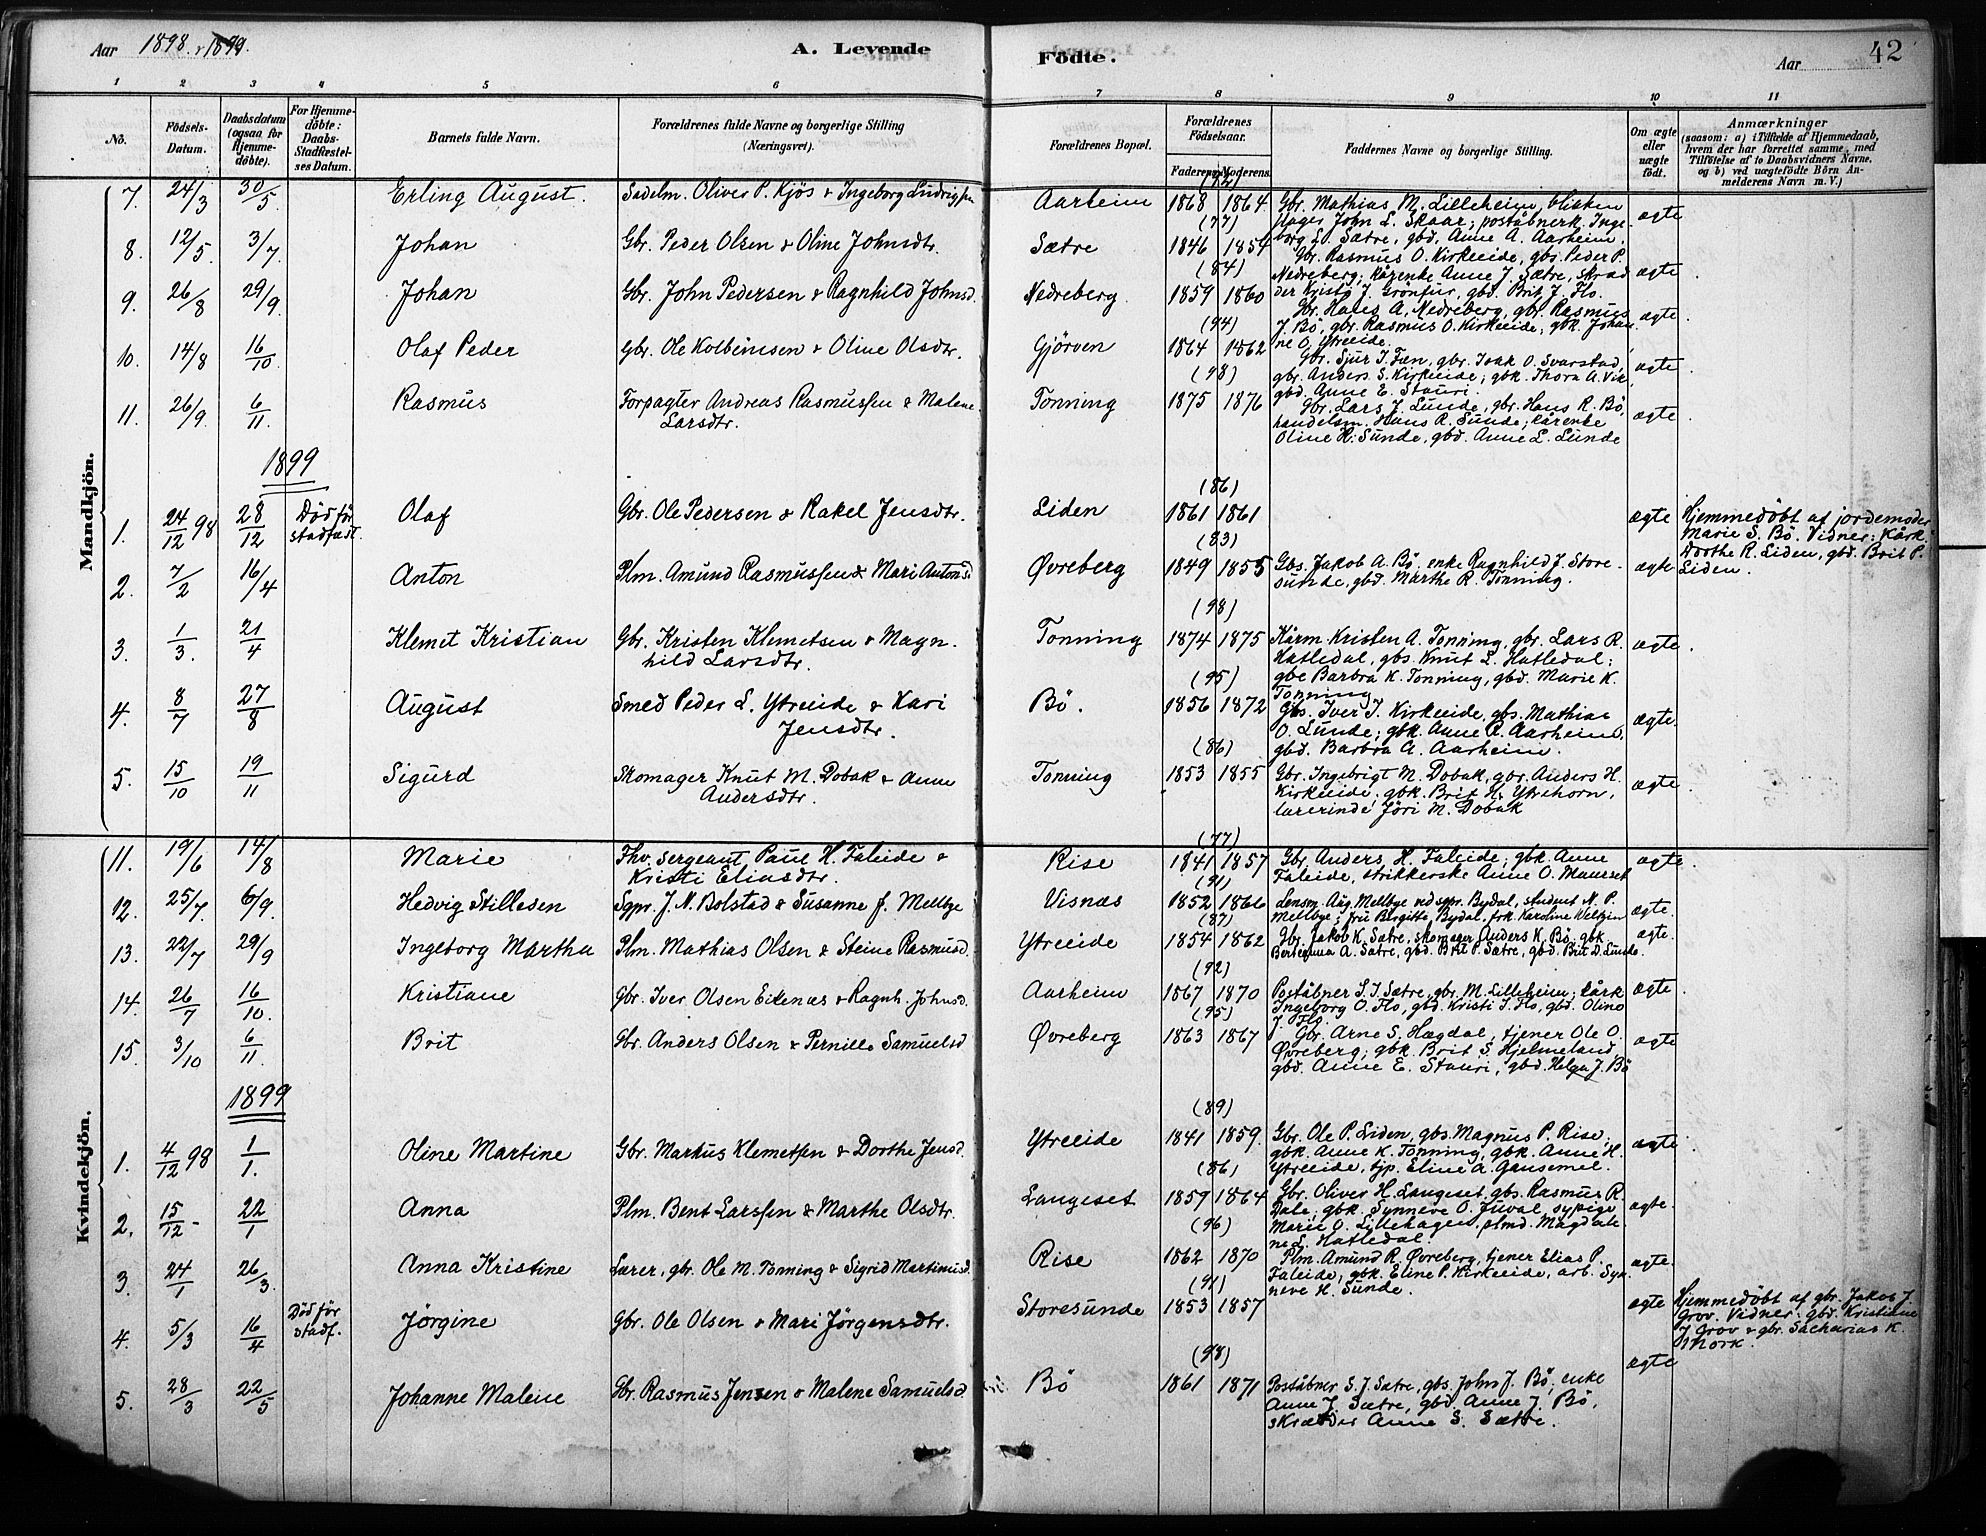 Aar 1898. & 1899.
A. Levende Födte.
Aar
42
1 2 3 4 5 6 7 8 9 10 11
No.
Födsels-Datum.
Daabsdatum (ogsaa for Hjemme-döbte).
For Hjemme-döbte: Daabs-Stadfæstel-ses Datum.
Barnets fulde Navn.
Forældrenes fulde Navne og borgerlige Stilling (Næringsvei).
Forældrenes Bopæl.
Forældrenes Födselsaar.
Faderens Moderens
Faddernes Navne og borgerlige Stilling.
Om ægte eller uægte födt.
Anmærkninger
(saasom: a) i Tilfælde af Hjemmedaab, hvem der har forrettet samme, med Tilföielse af to Daabsvidners Navne, og b) ved uægtefödte Börn An-melderens Navn m. V.)
Mandkjön.
7. 24/3 30/5 Erling August. Sadelm. Oliver P. Kjös & Ingeborg Ludvigsen Aarheim (92) 1868 1864 Gbr. Mathias M. Lilleheim, blikken
slager John L. Skaar; poståbnerk. Inge-
borg L. Sætre, gbd. Anne A. Aarheim. ægte
8. 12/5. 3/7. Johan Gbr. Peder Olsen & Oline Johnsdtr. Sætre (77) 1846 1854 Gbr. Rasmus O. Kirkeeide, gbr. Peder P.
Nedreberg; kårenke Anne J. Sætre, skræd
der Kristi J. Grönfur, gbd. Brit J. Flo. ægte
9. 26/8 29/9. Johan Gbr. John Pedersen & Ragnhild Johnsd. Nedreberg. (84) 1859 1860 Gbr. Hans A. Nedreberg, gbr. Rasmus
J. Bö, gbr. Rasmus O. Kirkeeide, gbk. Johan
ne O. Ytreeide. ægte
10. 14/8 16/10. Olaf Peder Gbr. Ole Kolbeinsen & Oline Olsdtr. Gjörven (94) 1864 1862 Gbr. Sjur I. Fæn, gbr. Isak O. Svarstad,
gbr. Anders S. Kirkeeide; gbk. Thora A. Vik,
gbd. Anne E. Stauri. ægte
11. 26/9. 6/11. Rasmus Forpagter Andreas Rasmussen & Malene
Larsdtr. Tonning (98) 1875 1876 Gbr. Lars J. Lunde, gbr. Hans R. Bö,
handelsm. Hans R. Sunde; kårenke
Oline H. Sunde, gbd. Anne L. Lunde ægte
1899
1. 24/12 98 28/12 Död för stadfæst. Olaf Gbr. Ole Pedersen & Rakel Jensdtr. Liden (86) 1861 1861 ægte Hjemmedöbt af jordemoder
Marie S. Bö. Vidner: Kårk.
Dorthe R. Liden, gbd. Brit P.
Liden.
2. 7/2 16/4 Anton Plm. Amund Rasmussen & Mari Antonsd Øvreberg (83) 1849 1855 Gbs. Jakob A. Bö, enke Ragnhild J. Store-
sunde, gbd. Marthe R. Tonning. ægte
3. 1/3. 21/4 Klemet Kristian Gbr. Kristen Klemetsen & Magn-
hild Larsdtr. Tonning (98) 1874 1875 Kårm. Kristen A. Tonning, gbr. Lars R.
Hatledal, gbs. Knut L. Hatledal;
gbe Barbra K. Tonning, gbd. Marie K.
Tonning ægte.
4. 8/7 27/8 August Smed Peder L. Ytreeide & Kari
Jensdtr. Bö. (95) 1856 1872 Gbs. Iver I. Kirkeeide, gbs. Mathias
O. Lunde; gbk. Anne R. Aarheim,
gbd. Barbra A. Aarheim. ægte.
5. 15/10 19/11 Sigurd Skomager Knut M. Dobak & Anne
Andersdtr. Tonning (86) 1853 1855 Gbr. Ingebrigt M. Dobak, gbr. Anders H.
Kirkeeide, gbk. Brit H. Ytrehorn,
lærerinde Jöri M. Dobak ægte.
Kvindekjön.
11. 19/6 14/8 Marie Fhv. sergeant Paul H. Faleide &
Kristi Eliasdtr. Rise (77) 1841 1857 Gbr. Anders H. Faleide; gbk. Anne
Faleide, strikkerske Anne O. Maurset ægte
12. 25/7. 6/9. Hedvig Stillesen Sgpr. J. N. Bolstad & Susanne f. Mellbye Visnæs (91) 1852 1866 Lensm. Aug. Mellbye ved sgpr. Bydal, student N. P.
Mellbye; fru Birgitte Bydal, frk. Karoline Weltzin ægte.
13. 22/7 29/9 Ingeborg Martha Plm. Mathias Olsen & Steine Rasmusd. Ytreeide (87) 1854 1862 Gbr. Jakob K. Sætre, skomager Anders K. Bö, gbk.
A. Sætre, gbd. Brit P. Sætre, gbd. Brit D. Lunde. ægte.
14. 26/7 16/10. Kristiane Gbr. Iver Olsen Eikenæs & Ragnh. Johnsd. Aarheim (92) 1867 1870 Poståbner S. J. Sætre, gbr. M. Lilleheim; kårk
Ingeborg O. Flo, gbd. Kristi J. Flo, gbd. Olina
J. Flo. ægte
15. 3/10 6/11. Brit Gbr. Anders Olsen & Pernille Samuelsd Øvreberg (95) 1863 1867 Gbr. Arne S. Hægdal, tjener Ole O.
Øvreberg; gbk. Brit S. Hjelmeland,
gbd. Anne E. Stauri, gbd. Helga J. Bö ægte
1899
1. 4/12 98 1/1. Oline Martine Gbr. Markus Klemetsen & Dorthe Jensd. Ytreeide (89) 1841 1859. Gbr. Ole P. Liden, gbs. Magnus P. Rise;
gbk. Anne K. Tonning, gbk. Anne H.
Ytreeide, tjp. Eline A. Gausemel. ægte
2. 15/12 - 22/1 Anna Plm. Bent Larssen & Marthe Olsdtr. Langeset (86) 1859 1864 Gbr. Oliver H. Langeset, gbs. Rasmus R.
Dale; gbk. Synneve O. Juval, sypige
Marie O. Lillehagen, plmd. Magdale-
ne L. Hatledal. ægte.
3. 24/1 26/3. Anna Kristine Lærer, gbr. Ole M. Tonning & Sigrid Martinusd. Rise (96) 1862 1870 Plm. Amund R. Øvreberg, tjener Elias P.
Faleide; gbk. Eline P. Kirkeeide, arb. Syn-
neve H. Sunde. ægte.
4. 5/3 16/4 Död för stadf. Jörgine Gbr. Ole Olsen & Mari Jörgensdtr. Storesunde (91) 1853 1857 ægte Hjemmedöbt af gbr. Jakob J.
Grov. Vidner: gbd. Kristiane
J. Grov & gbr. Sacharias K.
Mork.
5. 28/3 22/5 Johanne Malene Gbr. Rasmus Jensen & Malene Samuelsd Bö (98) 1861 1871 Poståbner S. J. Sætre, gbs. John J. Bö; enke
Anne J. Sætre, gbd. Anne J. Bö,
skrædder Anne S. Sætre. ægte